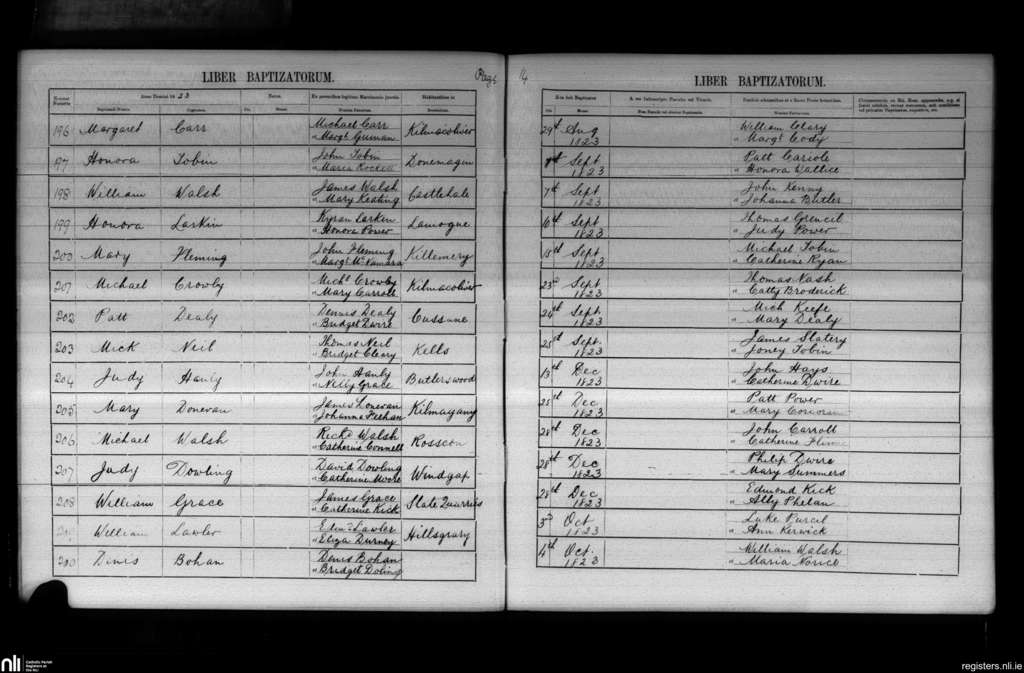 LIBER BAPTIZATORUM.
Page
Anno Domini 18 23
196 Margaret Carr Michael Carr Kilmacoliver
" Margt Guinan
197 Honora Tobin John Tobin Donemagin
" Maria
198 William Walsh James Walsh Castlehale
" Mary Keating
199 Honora Larkin Kyran Larkin Lamogue
" Honora Power
200 Mary Fleming John Fleming Killemery
" Margt McNamara
201 Michael Crowby Michl Crowby Kilmacoliver
" Mary Carroll
202 Patt Dealy Dennis Dealy Cussane
" Bridget Dwire
203 Mick Neil Thomas Neil Kells
" Bridget Cleary
204 Judy Hanly John Hanly Butlerswood
" Nelly Grace
205 Mary Donevan James Donevan Kilmagany
" Johanna Feehan
206 Michael Walsh Rickd Walsh Rosscon
" Catherine Connell
207 Judy Dowling David Dowling Windgap
" Catherine Moore
208 William Grace James Grace Slate Quarries
" Catherine Kick
William Lawler Edmd Lawler Hillsgrary
" Eliza Durney
200 Denis Bohan Denis Bohan
" Bridget Doling
14
LIBER BAPTIZATORUM.
29th Aug William Cleary
1823 " Margt Cody
Sept Patt Cariole
1823 " Honora Wallice
7th Sept John Kenny
1823 " Johanna Butler
16th Sept Thomas Grencil
1823 " Judy Power
Sept Michael Tobin
1823 " Catherine Ryan
23d Sept Thomas Nash
1823 " Catty Broderick
24th Sept Mich Keefe
1823 " Mary Dealy
25th Sept. James Slatery
1823 " Joney Tobin
13th Dec John Hays
1823 " Catherine Dwire
25th Dec Patt Power
1823 " Mary Corcoran
28th Dec John Carroll
1823 " Catherine
28th Dec Philip Dwire
1823 " Mary Summers
28th Dec Edmond Kick
1823 " Ally Phelan
3d Oct Luke Purcil
1823 " Ann Kerwick
4th Oct. William Walsh
1823 " Maria Norice
nli
Catholic Parish
Registers at
the NLI
registers.nli.ie